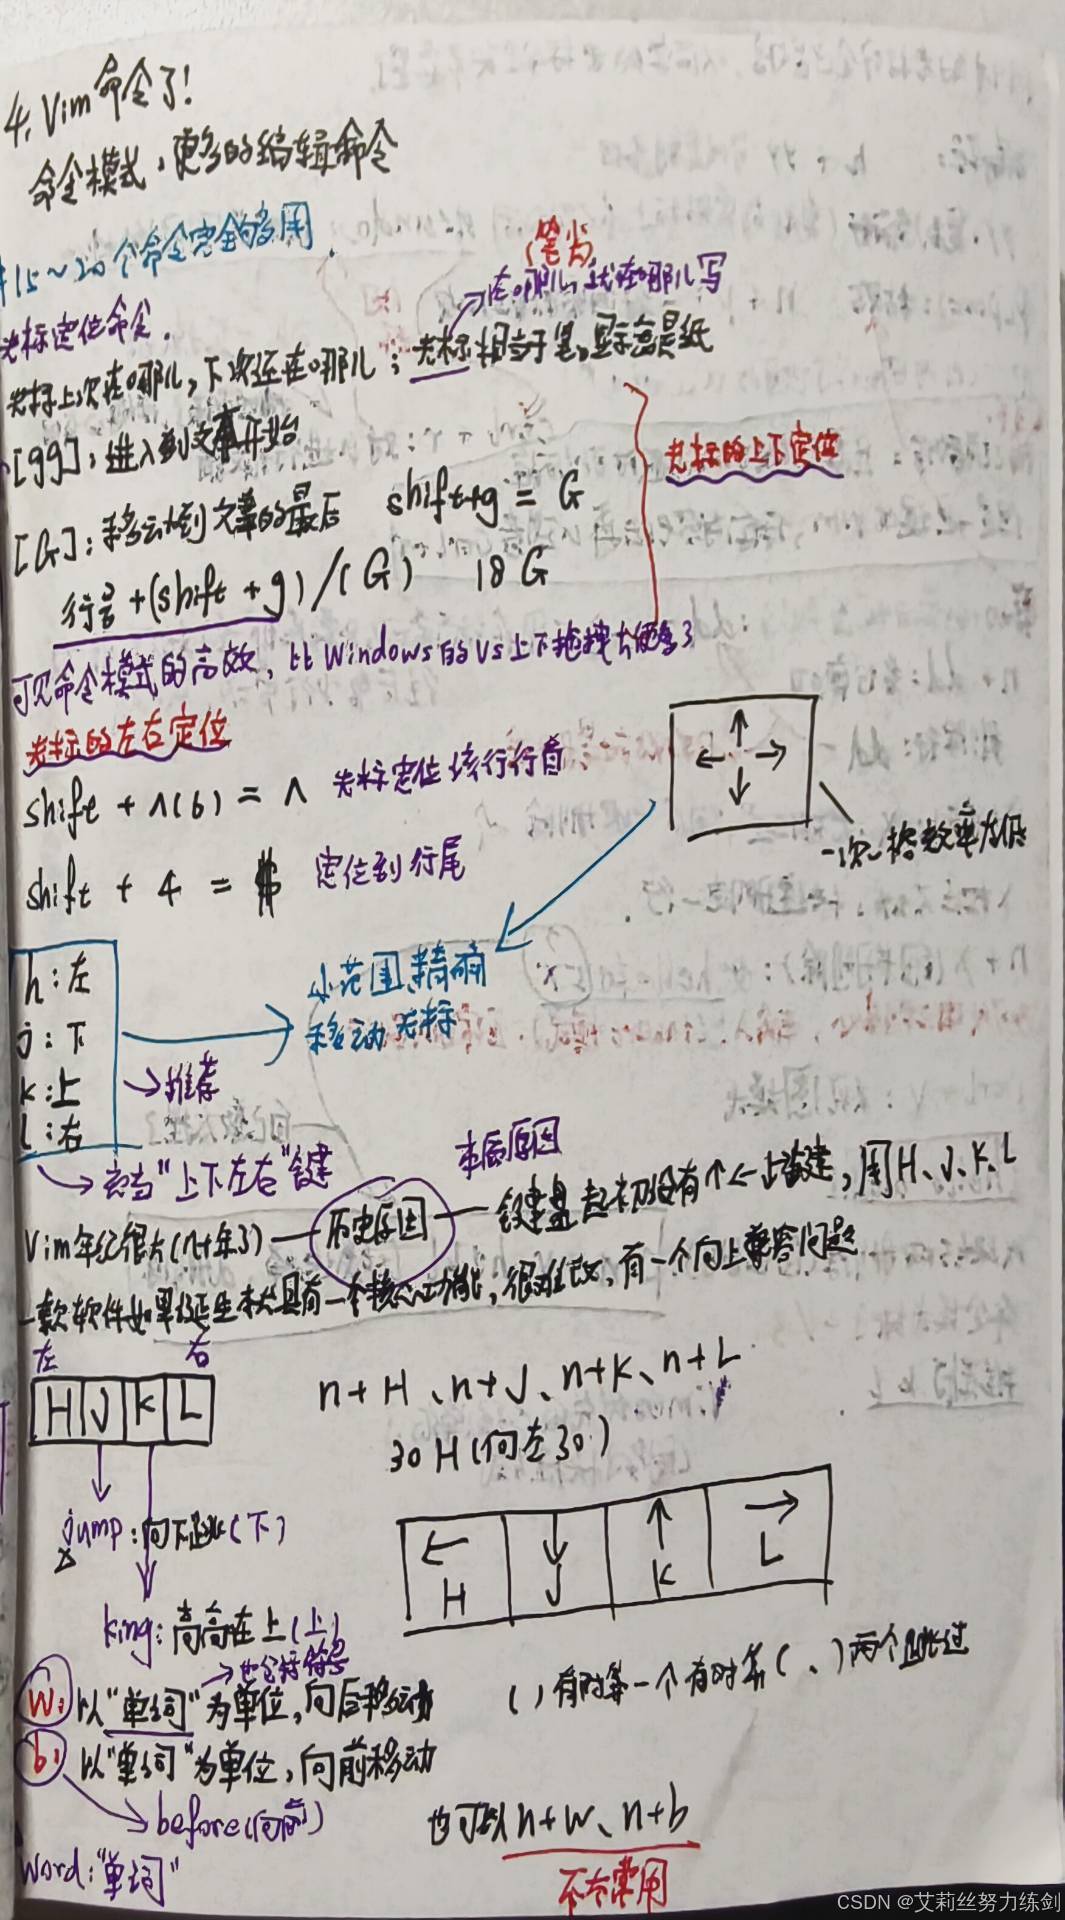 4. Vim命令了!
命令模式,更多的编辑命令
#15~20个命令完全够用
光标定位命令.
(笔尖)
在哪儿,就在哪儿写
光标上次在哪儿,下次还在哪儿;光标相当于笔,显示高是纸
[gg]:进入到文章开始
光标的上下定位
[G]:移动到文章的最后 shift+g = G
行号+(shift+g)/(G) 18G
可见命令模式的高效,比Windows的VS上下拖拽方便多了
光标的左右定位
shift + ∧(6) = ∧ 光标定位该行行首
← ↑ ↓ →
一次一格效率太低
shift + 4 = $ 定位到行尾
h:左
j:下
k:上
l:右
小范围精确
移动光标
推荐
→ 充当"上下左右"键
本质原因
Vim年纪很大(几十年了)—历史原因—键盘起初没有↑←上键,用H、J、K、L
一款软件如果诞生就具有一个核心功能;很难改,有一个向上兼容问题
左 右
H J K L
n+H、n+J、n+K、n+L
30H(向左30)
jump:向下跳(下)
← ↓ ↑ →
H J K L
king:高高在上(上)
→也包括符号
w:以"单词"为单位,向后移动
( )有时算一个有时算(、)两个且跳过
b:以"单词"为单位,向前移动
→before(向前)
也可以n+w、n+b
word:"单词"
不太常用
CSDN @艾莉丝努力练剑